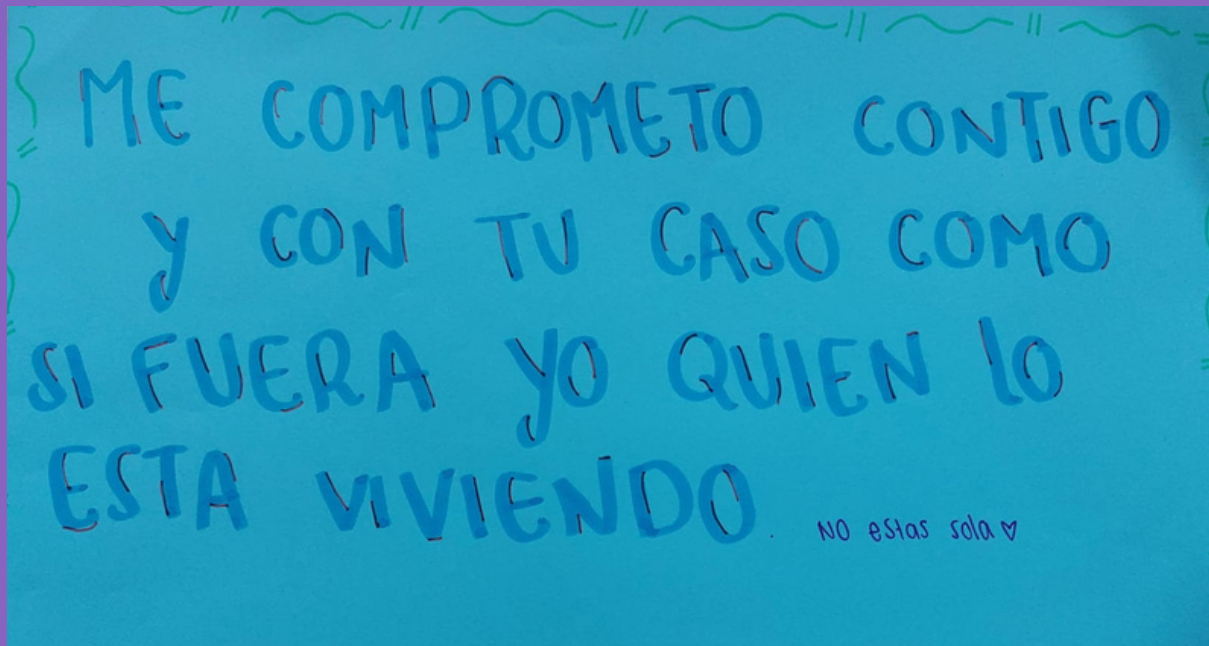 ME COMPROMETO CONTIGO
y CON TU CASO COMO
SI FUERA yO QUIEN lO
ESTA VIVIENDO. NO estas sola ♡